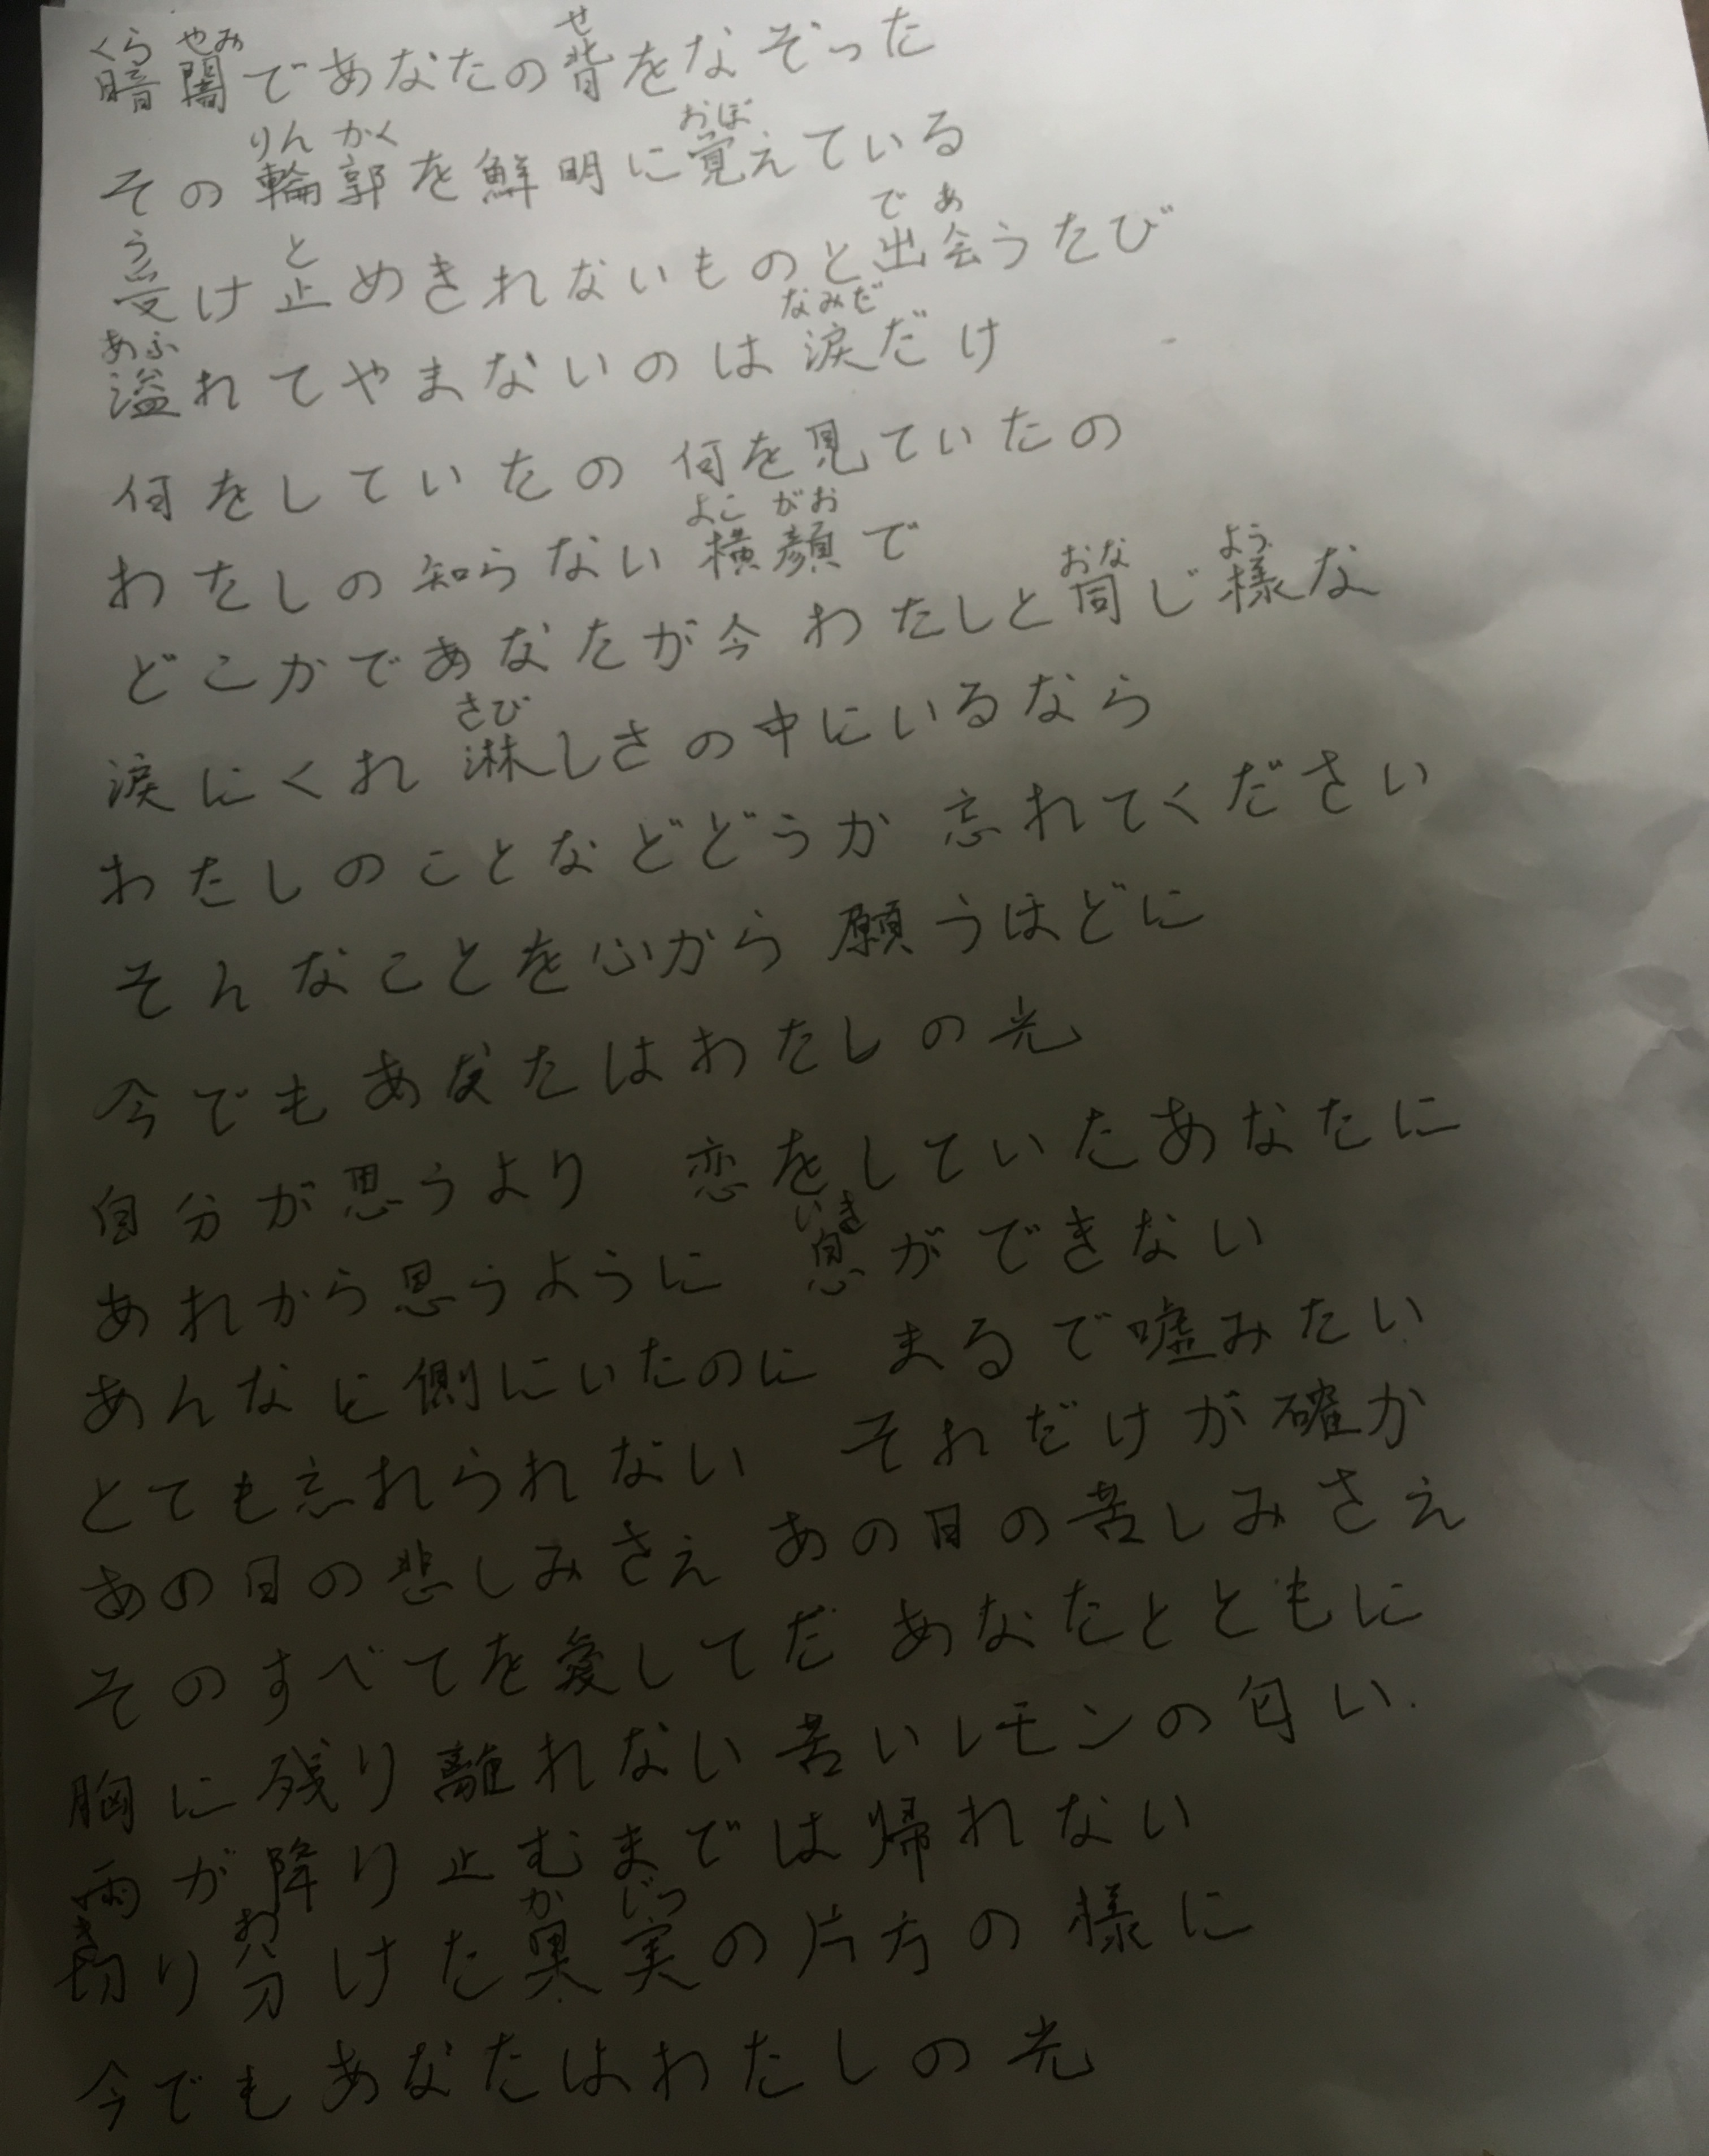 くらやみ せ
暗闇であなたの背をなぞった
りんかく おぼ
その輪郭を鮮明に覚えている
う と であ
受け止めきれないものと出会うたび
あふ なみだ
溢れてやまないのは涙だけ
何をしていたの 何を見ていたの
よこがお
わたしの知らない横顔で
おな よう
どこかであなたが今 わたしと同じ様な
さび
涙にくれ 淋しさの中にいるなら
わたしのことなどどうか 忘れてください
そんなことを心から 願うほどに
今でもあなたはわたしの光
自分が思うより 恋をしていたあなたに
いき
あれから思うように 息ができない
あんなに側にいたのに まるで嘘みたい
とても忘れられない それだけが確か
あの日の悲しみさえ あの日の苦しみさえ
そのすべてを愛してた あなたとともに
胸に残り離れない 苦いレモンの匂い
雨が降り止むまでは帰れない
き わ かじつ
切り分けた果実の片方の様に
今でもあなたはわたしの光